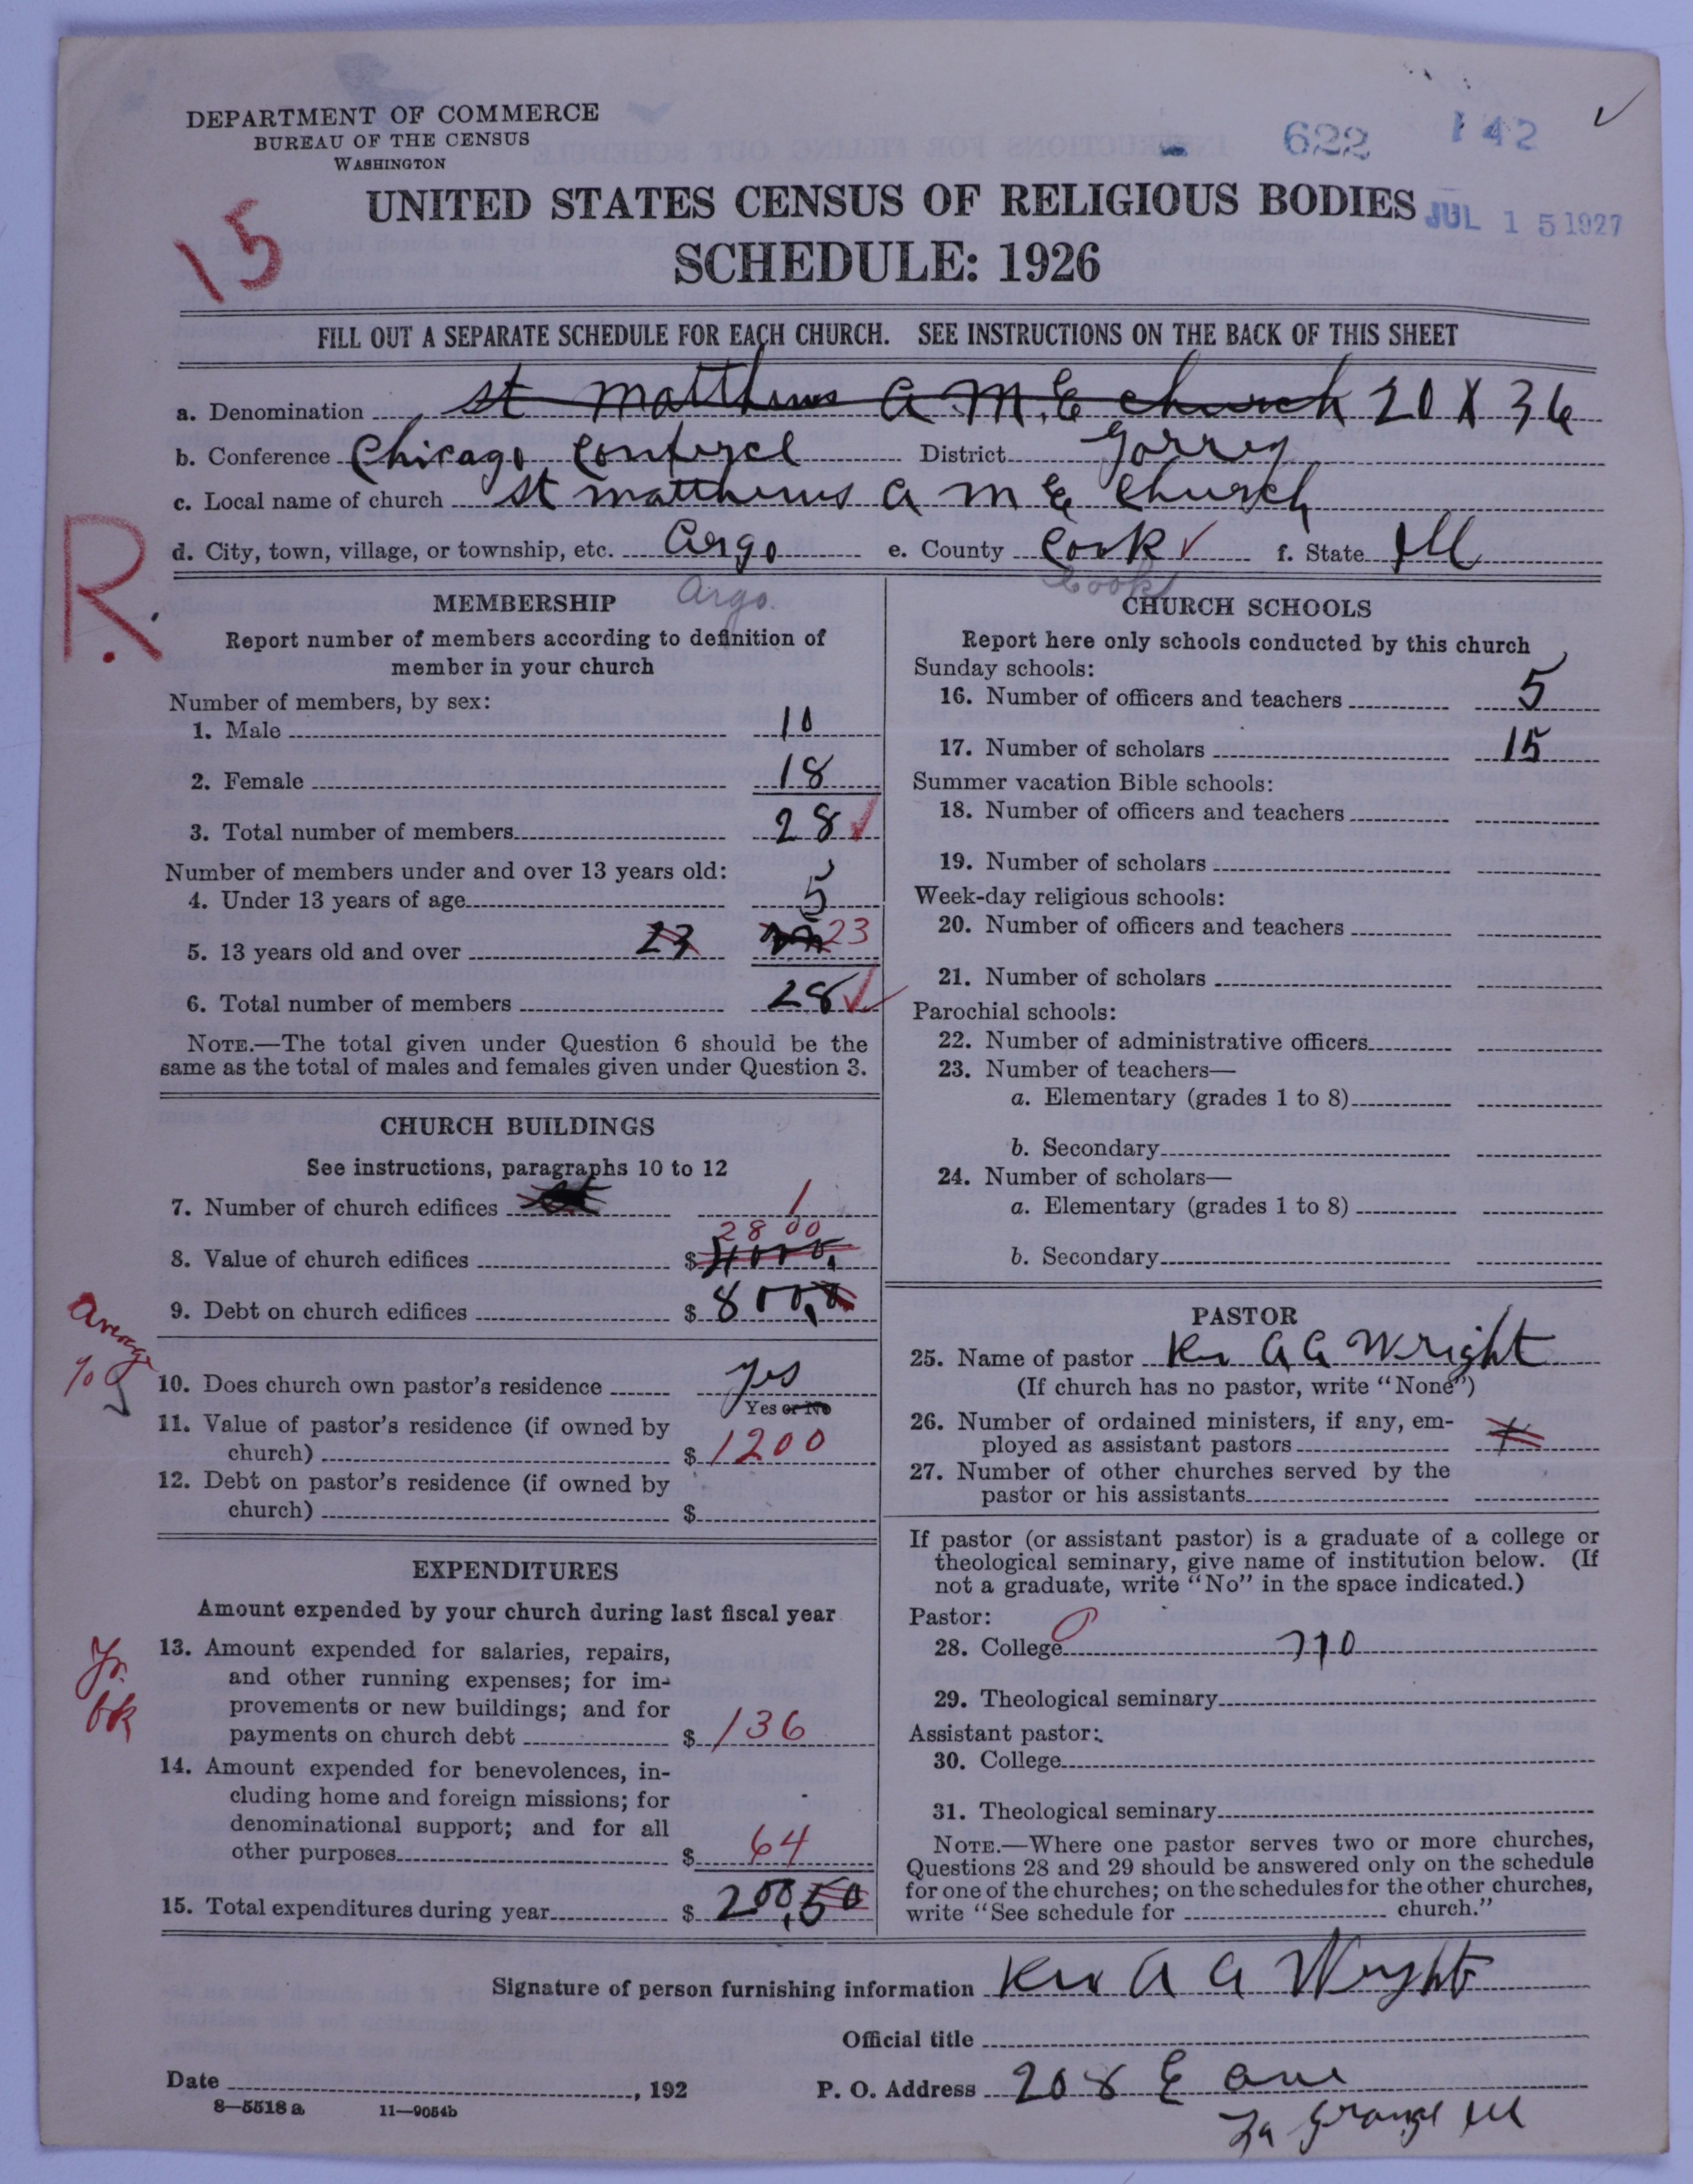 DEPARTMENT OF COMMERCE
BUREAU OF THE CENSUS
WASHINGTON
622 142
UNITED STATES CENSUS OF RELIGIOUS BODIES
JUL 15 1927
15
SCHEDULE: 1926
FILL OUT A SEPARATE SCHEDULE FOR EACH CHURCH. SEE INSTRUCTIONS ON THE BACK OF THIS SHEET
a. Denomination st matthews A M.E church 20 X 36
b. Conference Chicago District
c. Local name of church st matthews A M E Church
d. City, town, village, or township, etc. Argo e. County Cook f. State Ill
R.
Argo.
Cook
MEMBERSHIP
Report number of members according to definition of
member in your church
Number of members, by sex:
1. Male 10
2. Female 18
3. Total number of members 28
Number of members under and over 13 years old:
4. Under 13 years of age 5
5. 13 years old and over 23 23
6. Total number of members 28
NOTE.—The total given under Question 6 should be the
same as the total of males and females given under Question 3.
CHURCH BUILDINGS
See instructions, paragraphs 10 to 12
7. Number of church edifices 1
2800
8. Value of church edifices $4000.
9. Debt on church edifices $800.
average
%
10. Does church own pastor's residence yes
Yes or No
11. Value of pastor's residence (if owned by
church) $1200
12. Debt on pastor's residence (if owned by
church) $
EXPENDITURES
Amount expended by your church during last fiscal year
Yr.
bk
13. Amount expended for salaries, repairs,
and other running expenses; for im-
provements or new buildings; and for
payments on church debt $136
14. Amount expended for benevolences, in-
cluding home and foreign missions; for
denominational support; and for all
other purposes $64
15. Total expenditures during year $200.50
CHURCH SCHOOLS
Report here only schools conducted by this church
Sunday schools:
16. Number of officers and teachers 5
17. Number of scholars 15
Summer vacation Bible schools:
18. Number of officers and teachers
19. Number of scholars
Week-day religious schools:
20. Number of officers and teachers
21. Number of scholars
Parochial schools:
22. Number of administrative officers
23. Number of teachers—
a. Elementary (grades 1 to 8)
b. Secondary
24. Number of scholars—
a. Elementary (grades 1 to 8)
b. Secondary
PASTOR
25. Name of pastor Rev A A Wright
(If church has no pastor, write "None")
26. Number of ordained ministers, if any, em-
ployed as assistant pastors
27. Number of other churches served by the
pastor or his assistants
If pastor (or assistant pastor) is a graduate of a college or
theological seminary, give name of institution below. (If
not a graduate, write "No" in the space indicated.)
Pastor:
28. College no
29. Theological seminary
Assistant pastor:
30. College
31. Theological seminary
NOTE.—Where one pastor serves two or more churches,
Questions 28 and 29 should be answered only on the schedule
for one of the churches; on the schedules for the other churches,
write "See schedule for church."
Signature of person furnishing information Rev A A Wright
Official title
Date , 192 P. O. Address 208 E ave
La Grange Ill
8—5518 a 11—9054b